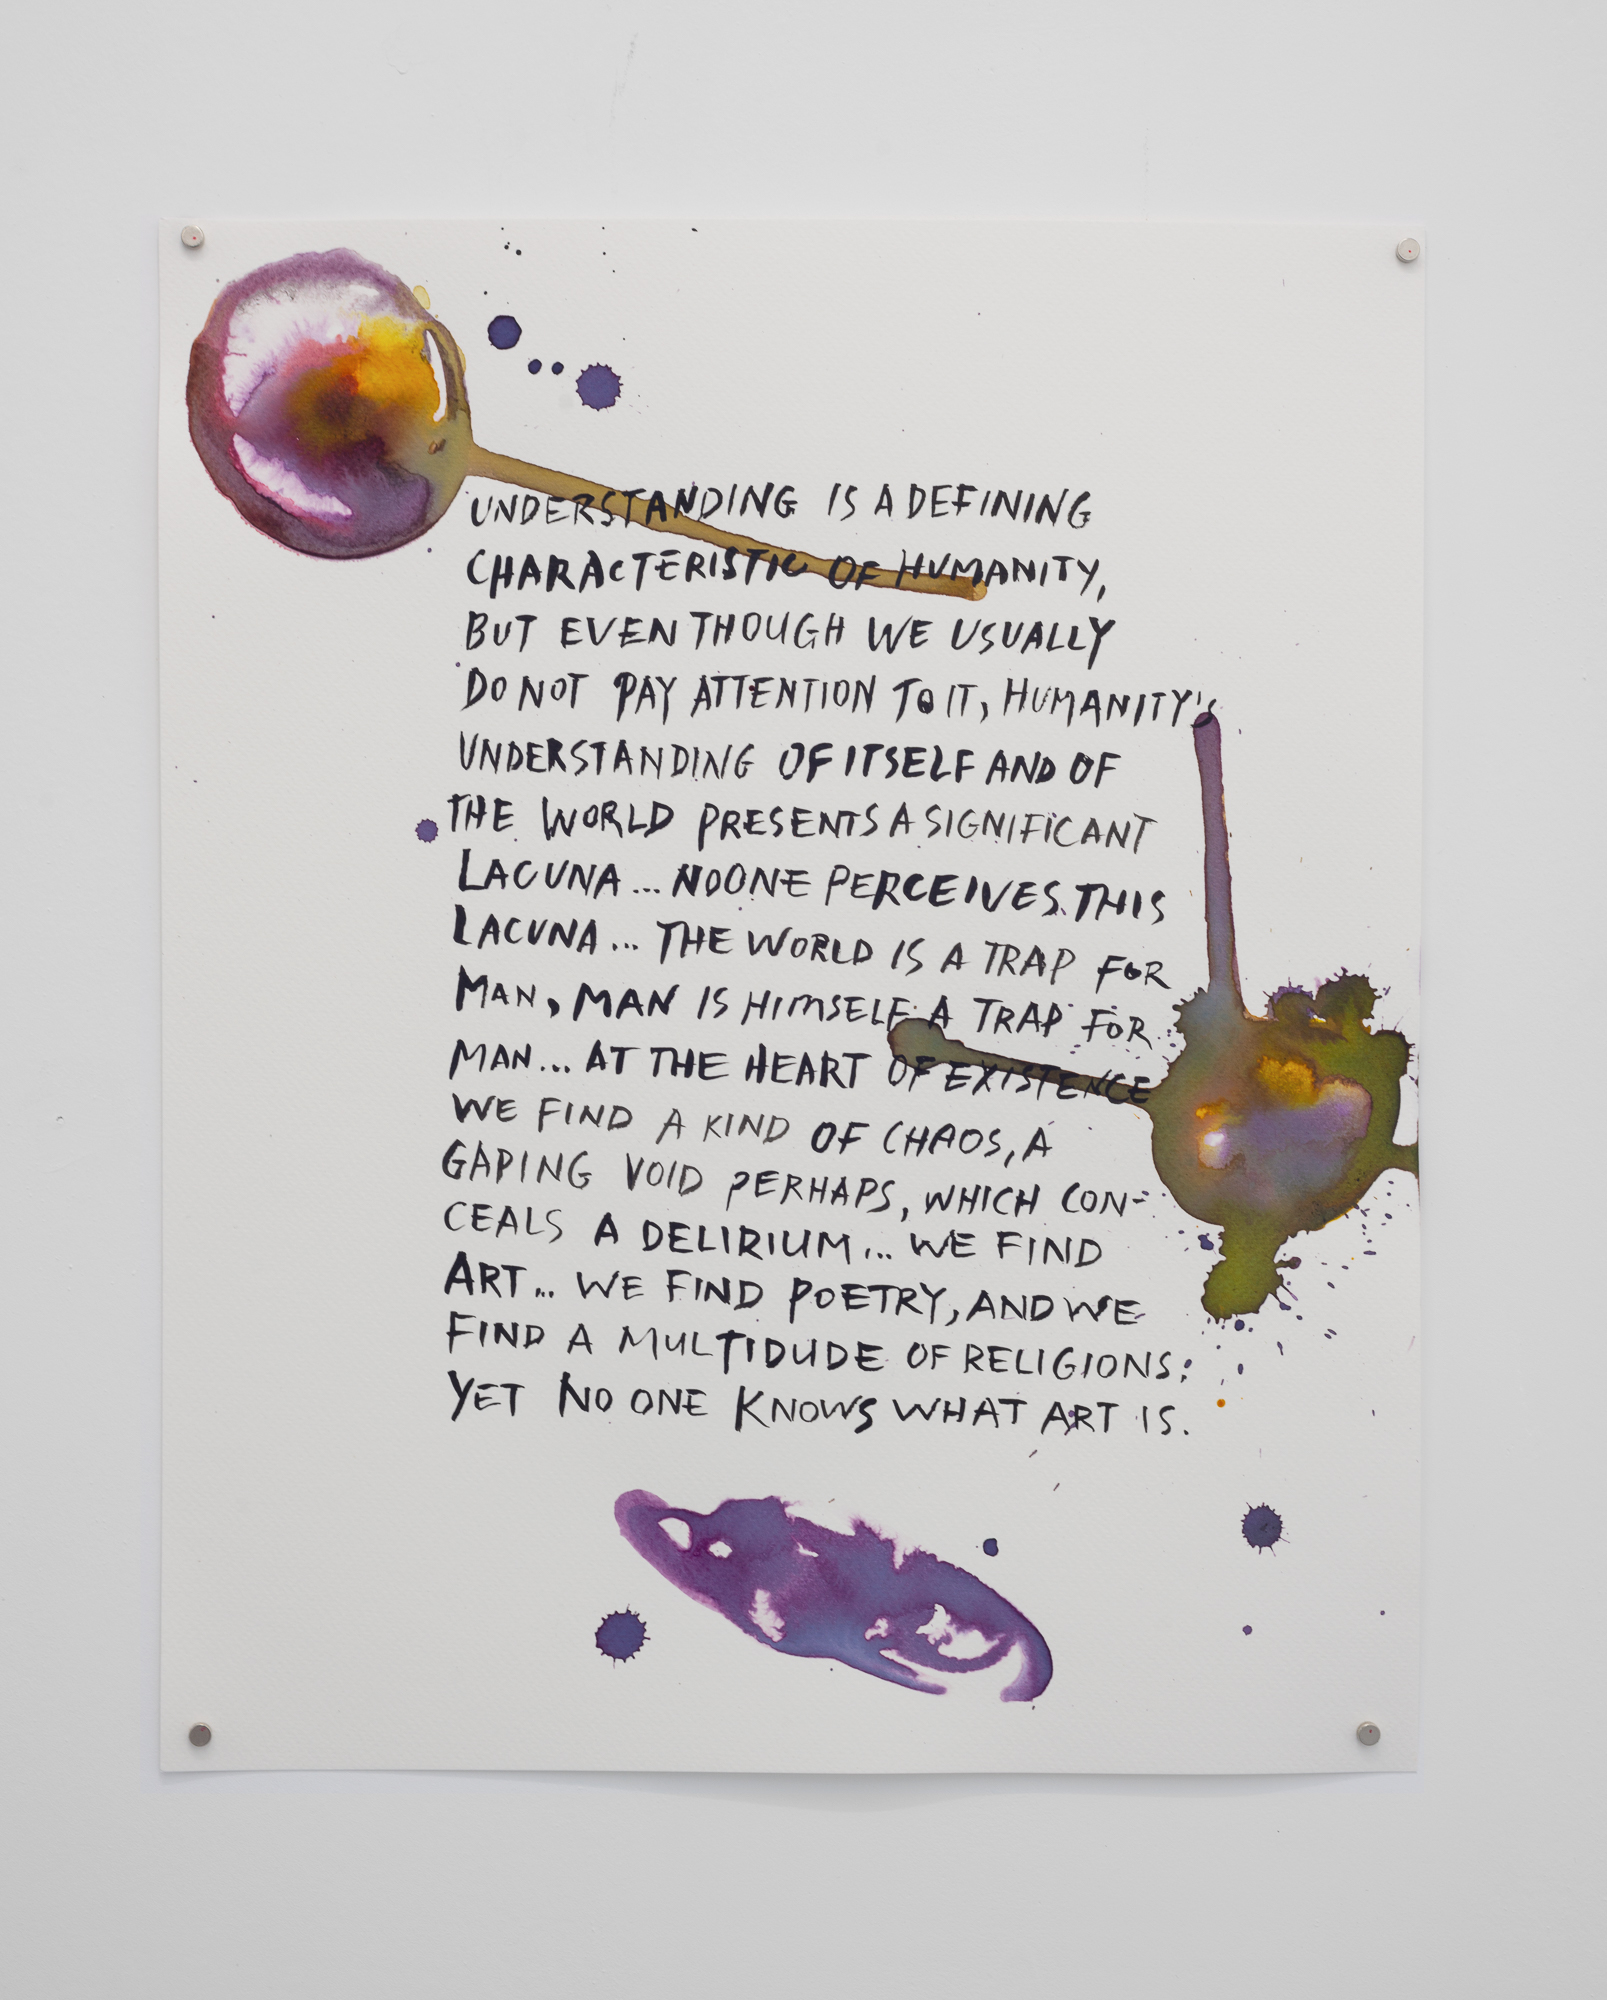 UNDERSTANDING IS A DEFINING
CHARACTERISTIC OF HUMANITY,
BUT EVEN THOUGH WE USUALLY
DO NOT PAY ATTENTION TO IT, HUMANITY'S
UNDERSTANDING OF ITSELF AND OF
THE WORLD PRESENTS A SIGNIFICANT
LACUNA... NOONE PERCEIVES THIS
LACUNA... THE WORLD IS A TRAP FOR
MAN, MAN IS HIMSELF A TRAP FOR
MAN... AT THE HEART OF EXISTENCE
WE FIND A KIND OF CHAOS, A
GAPING VOID PERHAPS, WHICH CON-
CEALS A DELIRIUM... WE FIND
ART... WE FIND POETRY, AND WE
FIND A MULTIDUDE OF RELIGIONS:
YET NO ONE KNOWS WHAT ART IS.